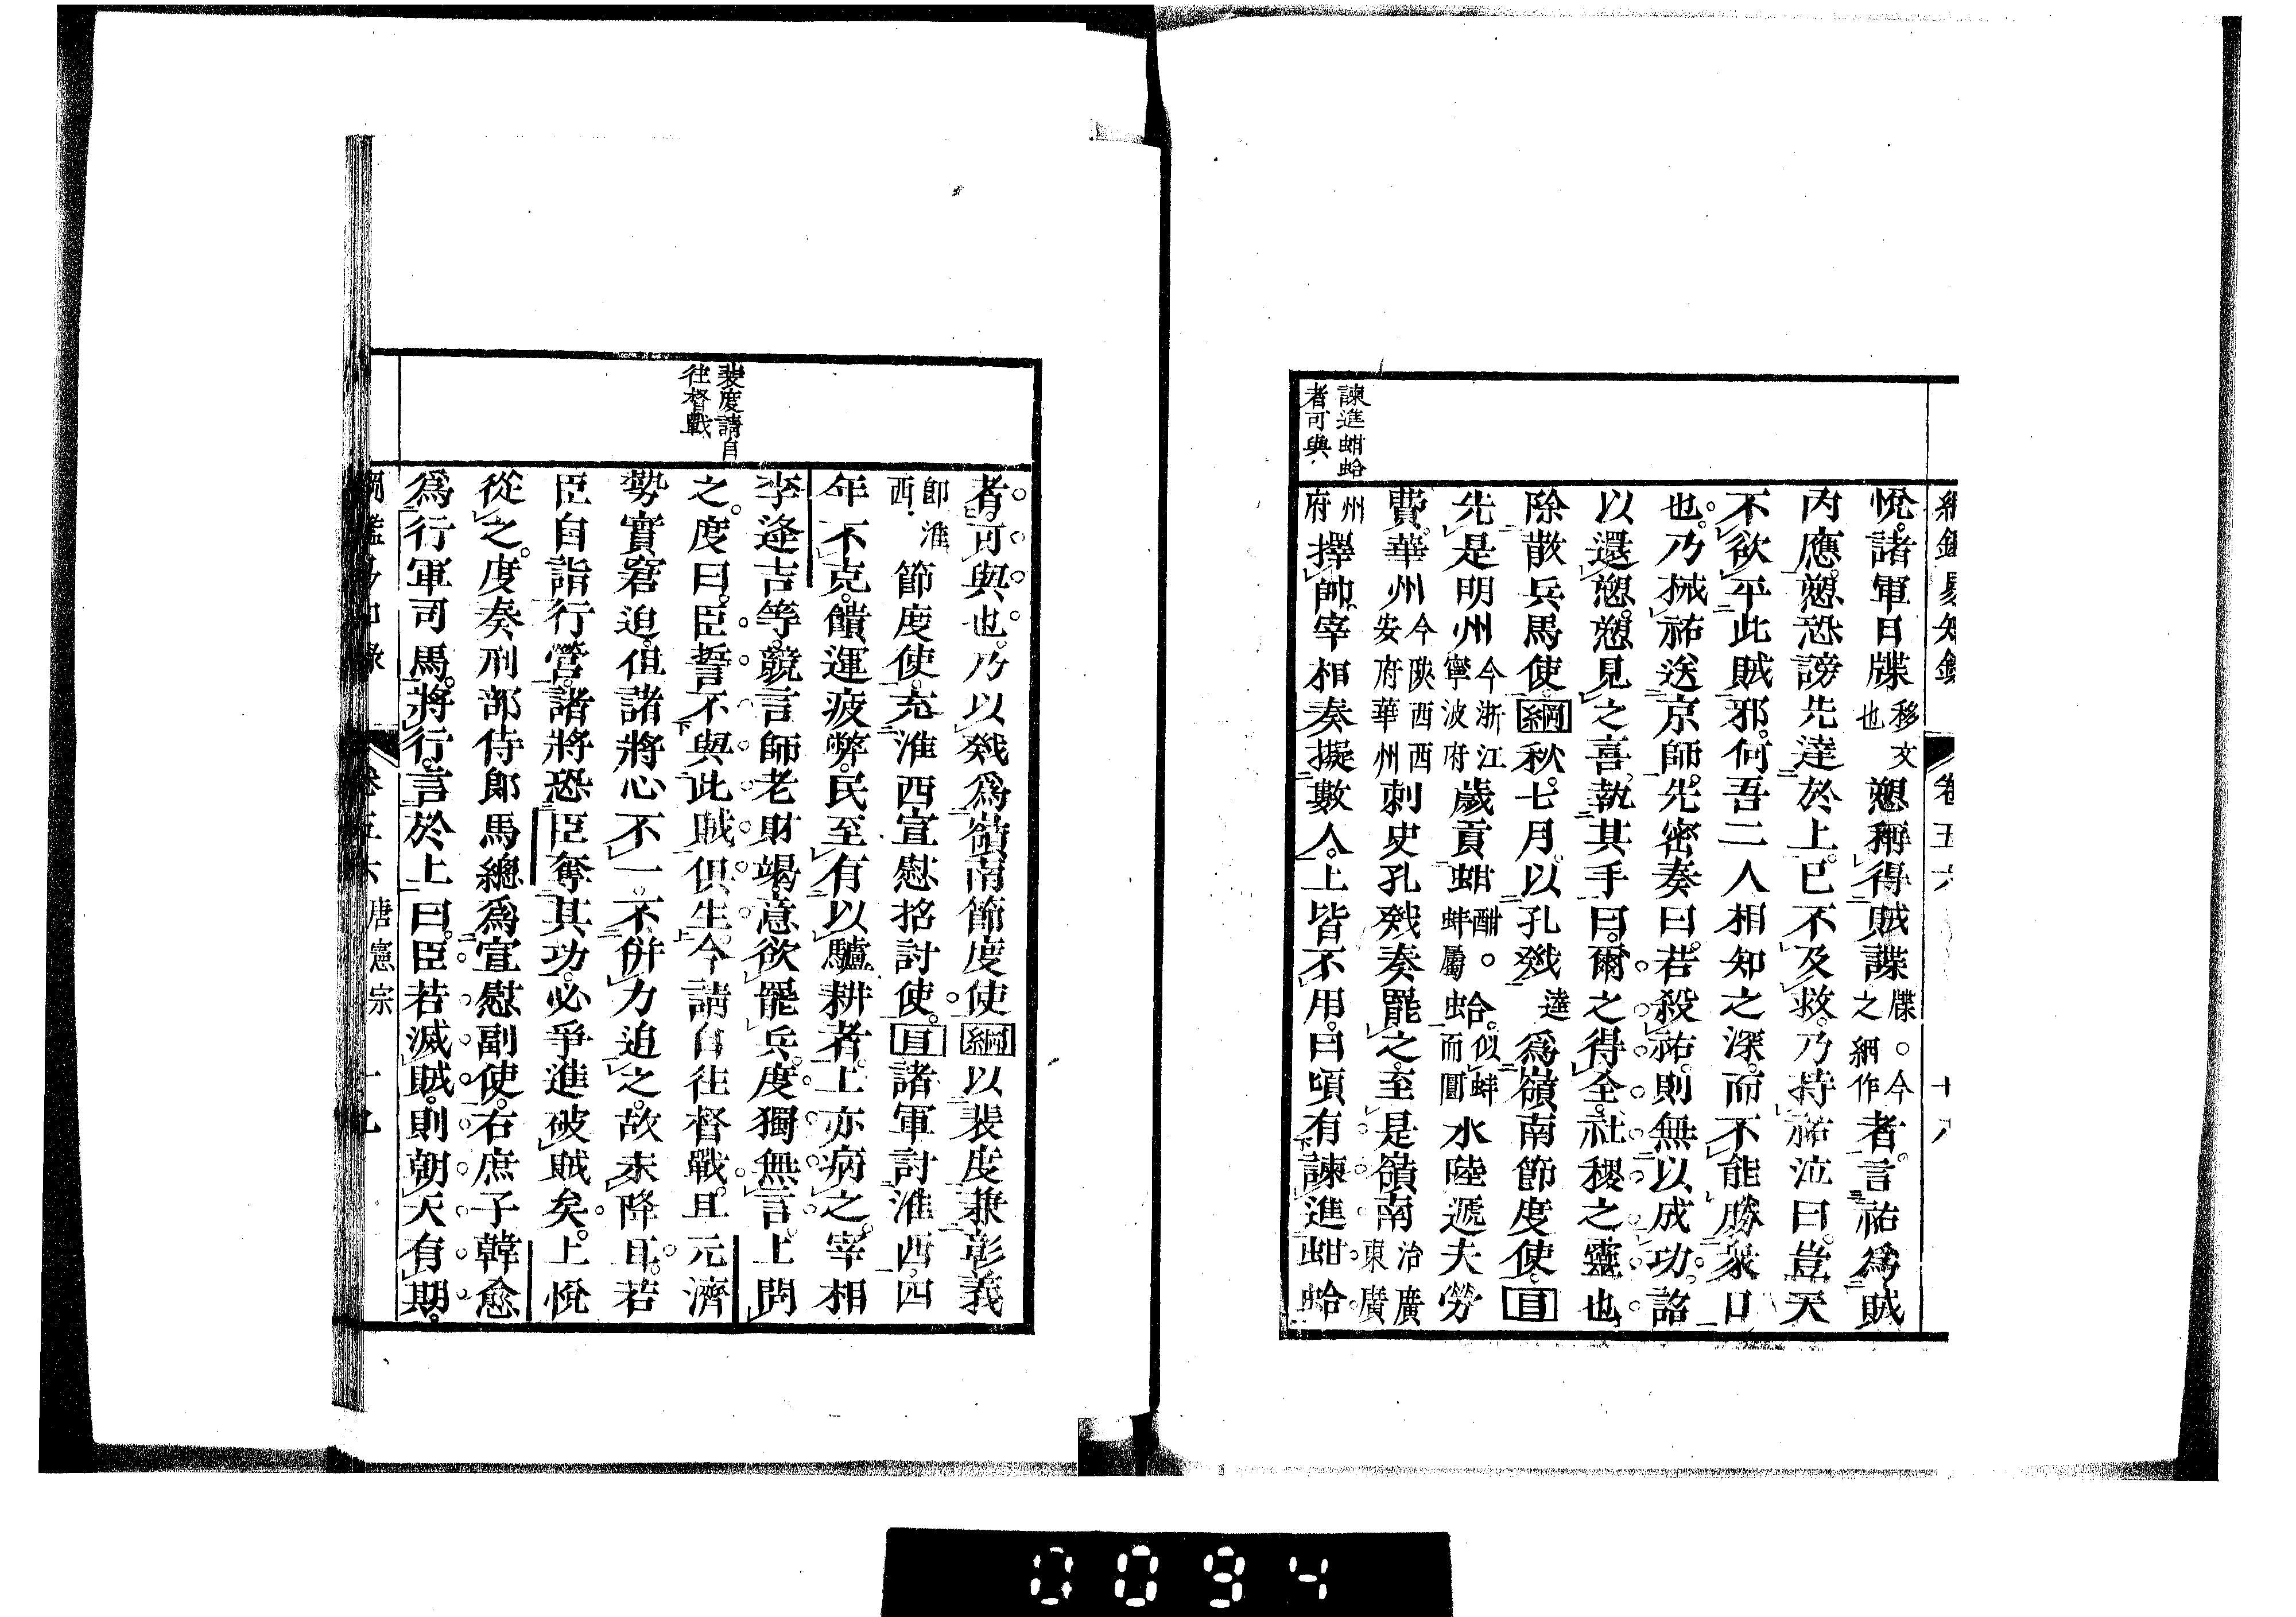 綱鑑易知錄　卷五六　十八
諫進蚶蛤
者可與
悅諸軍日牒移文也愬稱得賊諜牒。今之綱作者言祐爲賊
內應愬恐謗先達於上已不及救乃持祐泣曰豈天
不欲平此賊邪何吾二人相知之深而不能勝衆口
也乃械祐送京師先密奏曰若殺祐則無以成功詔
以還愬愬見之喜執其手曰爾之得全社稷之靈也
除散兵馬使綱秋七月以孔戣逵爲嶺南節度使目
先是明州今浙江寧波府歲貢蚶酣。蚌屬蛤似蚌而圓水陸遞夫勞
費華州今陝西西安府華州刺史孔戣奏罷之至是嶺南治廣東廣
州府擇帥宰相奏擬數人上皆不用曰頃有諫進蚶蛤
裴度請自
往督戰
者可與也乃以戣爲嶺南節度使綱以裴度兼彰義
卽淮西節度使充淮西宣慰招討使目諸軍討淮西四
年不克饋運疲弊民至有以驢耕者上亦病之宰相
李逢吉等競言師老財竭意欲罷兵度獨無言上問
之度曰臣誓不與此賊俱生今請自往督戰且元濟
勢實窘迫但諸將心不一不併力迫之故未降耳若
臣自詣行營諸將恐臣奪其功必爭進破賊矣上悅
從之度奏刑部侍郎馬總爲宣慰副使右庶子韓愈
爲行軍司馬將行言於上曰臣若滅賊則朝天有期
綱鑑易知錄　卷五六　唐憲宗　十九
0094